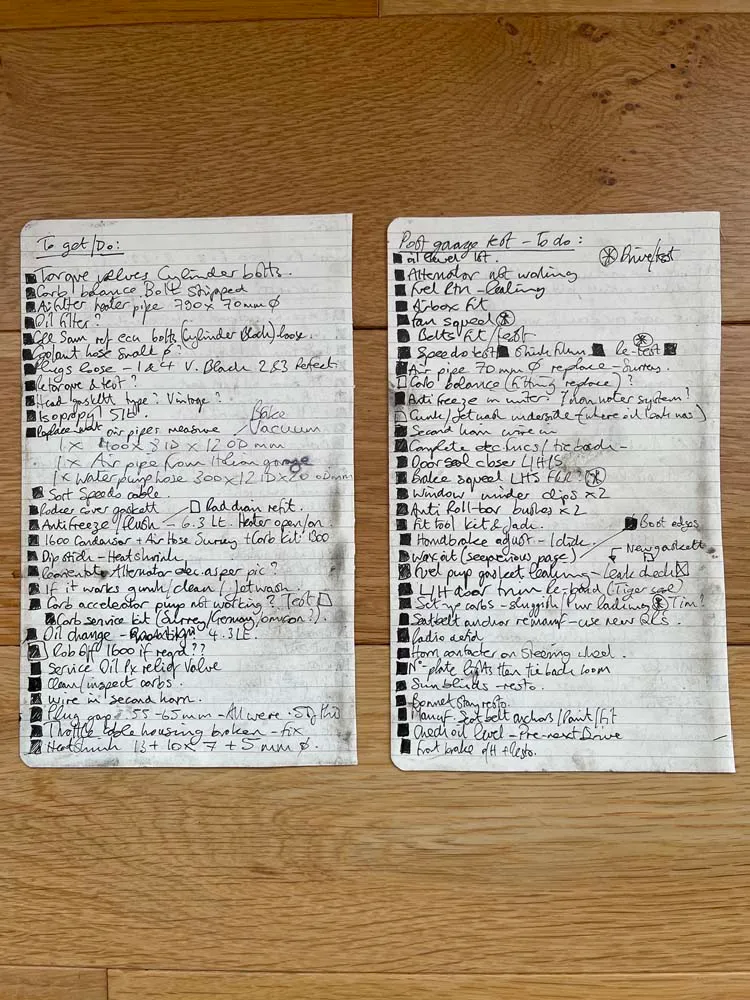 To get/Do:
Torque valves Cylinder bolts.
Carb balance Bolt stripped
Air filter heater pipe 790 x 70mm Ø
Oil filter?
Sam ref bolts (Cylinder Block) loose.
Coolant hose small Ø?
Plugs loose - 1 & 4 V. Black 2 & 3 Perfect
Retorque & test?
Head gaskett type? Vintage?
Isopropyl 5 Lt.
Replace air pipes measure / Brake Vacuum
1 x 400 x 3 ID x 12 OD mm
1 x Air pipe from garage
1 x Water pump hose 300 x 12 ID x 20 OD mm
Sort Speedo cable.
Rocker cover gaskett Rad drain refit.
Antifreeze/flush - 6.3 Lt. Heater open/on.
1600 Condensor + Air Hose Surrey + Carb kit 1300
Dipstick - Heatshrink
Alternator elec. as per pic?
If it works gunk/clean/Jetwash.
Carb accelerator pump not working? Test
Carb service kit (Surrey/Germany/ ?)
Oil change - 4.3 Lt.
Rob off 1600 if reqrd??
Service Oil Px relief Valve
Clean/inspect carbs.
Wire in second horn.
Plug gap .55 - 65mm - All were .50
Throttle cable housing broken - fix
Heatshrink 13 + 10 x 7 + 5 mm Ø.
Post garage test - To do:
oil level Drive/test
Alternator not working
Fuel Rtn - leaking
Airbox fit
Fan squeal
Belts fit/test
Speedo test Re-test
Air pipe 70mm Ø replace - Surrey.
Carb balance (fitting replace)?
Anti freeze in winter? / non water system?
Gunk/Jetwash underside (where oil leak was)
Second horn wire in
Complete electrics/tie back -
Door seal closer L/H/S
Brake squeal LHS
Window winder clips x2
Anti Roll-bar bushes x2
Fit tool kit & Jack. Boot edges
Handbrake adjust - 1 click. New gaskett
Wax oil (see previous page)
Fuel pump gasket leaking - Leak check
L/H door trim re-bond (Tiger seal)
Set up carbs - sluggish / Tim?
Seatbelt anchor remanuf - use new
Radio aerial
Horn contactor on Steering wheel.
No-plate lights then tie back loom
Sun blinds - resto.
Bonnet stay resto.
Manuf. Seatbelt anchors/Paint/Fit
Check oil level - Pre-next Drive
Front brake o/H + resto.